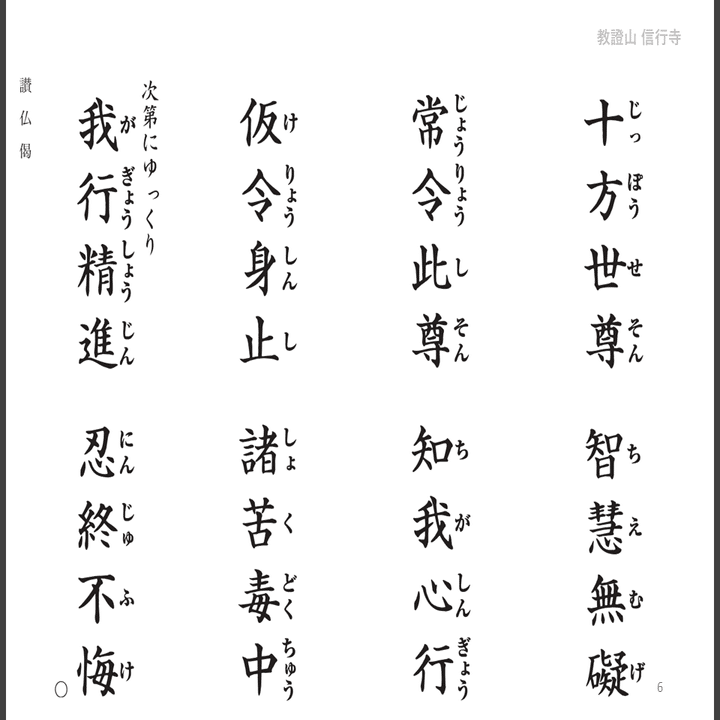 教證山 信行寺
十方世尊 智慧無礙
じっ ぽう せ そん ち え む げ
常令此尊 知我心行
じょう りょう し そん ち が しん ぎょう
仮令身止 諸苦毒中
け りょう しん し しょ く どく ちゅう
次第にゆっくり
我行精進 忍終不悔
が ぎょう しょう じん にん じゅ ふ け
○
讃仏偈
6